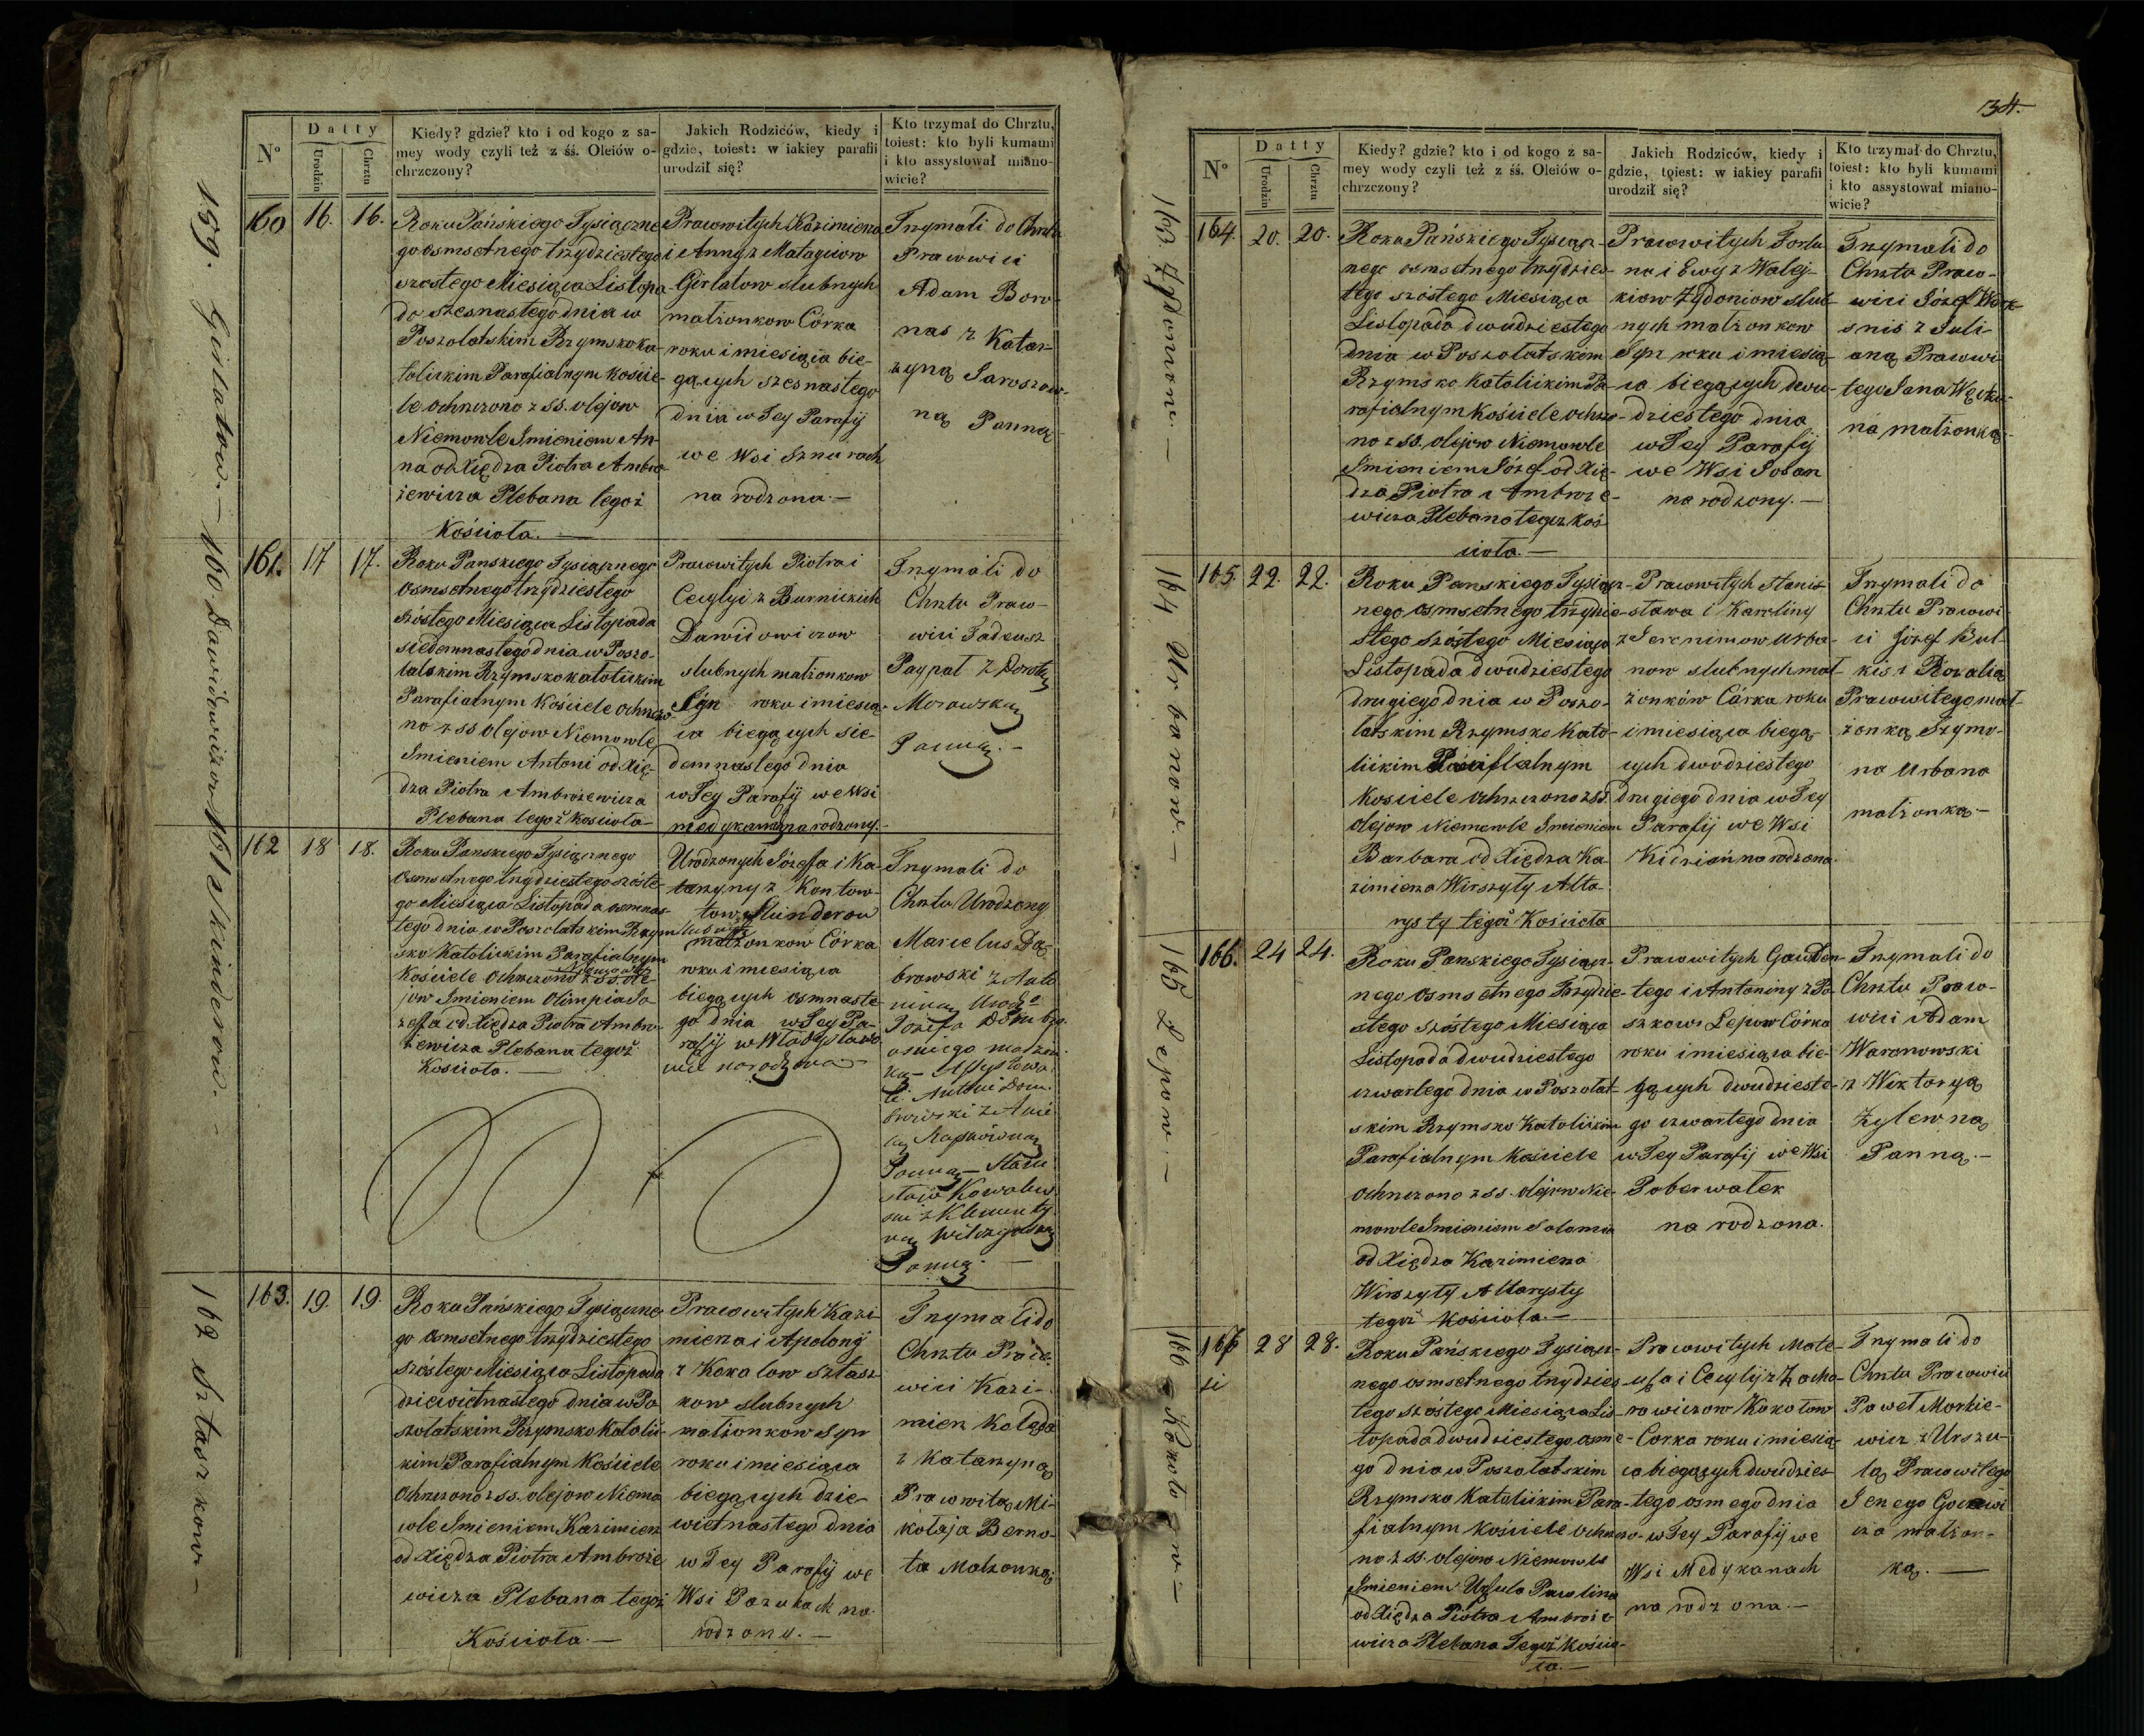 Nº
Datty
Urodzin
Chrztu
Kiedy? gdzie? kto i od kogo z sa-
mey wody czyli też z śś. Oleiów o-
chrzczony?
Jakich Rodziców, kiedy i
gdzie, toiest: w iakiey parafii
urodził się?
Kto trzymał do Chrztu,
toiest: kto byli kumami
i kto assystował miano-
wicie?
159. Girłatow. —
160. Dawidowiczow
161 Skinderow. —
162 Sztaszkow —
160
16.
16.
Roku Pańskiego Tysiączne
go osmsetnego trzydziestego
szostego Miesiąca Listopa-
da szesnastego dnia w
Poszolatskim Rzymsko ka-
tolickim Parafialnym koście-
le ochrzczono z SS. olejow
Niemowle Imieniem An-
na od Xiędza Piotra Ambro-
żewicza Plebana tegoż
Kościoła. —
Prawowitych Kazimierza
i Anny z Matagiow
Girlatow slubnych
małżonkow Córka
roku i miesiąca bie-
gących szesnastego
dnia w Tey Parafij
we Wsi Sznurach
na rodzona. —
Trzymali do Chrztu
Prawwici
Adam Boro-
nas z Katar-
zyną Jaroszow-
ną Panną
161.
17
17.
Roku Panskiego Tysiącznego
osmsetnego trzydziestego
szóstego Miesiąca Listopada
siedemnastego dnia w Poszo-
latskim Rzymsko katolickim
Parafialnym Kościele ochrzczo-
no z SS olejow Niemowle
Imieniem Antoni od Xię-
dza Piotra Ambrożewicza
Plebana tegoż Kościoła —
Prawowitych Piotra i
Cecylyi z Burnickich
Dawidowiczow
slubnych małżonkow
Syn roku i miesią-
ca biegących sie-
demnastego dnia
w Tey Parafij we Wsi
medykanach na rodzony. —
Trzymali do
Chrztu Praw-
wici Tadeusz
Paypał z Dorotą
Morawską
Panną. —
162
18
18.
Roku Panskiego Tysiącznego
osmsetnego trzydziestego szóste-
go Miesiąca Listopada osmnas-
tego dnia w Poszolatskim Rzym-
sko Katolickim Parafialnym
Kościele ochrzczono z SS. ole-
jow Imieniem Olimpia Jo-
zefa od Xiędza Piotra Ambro-
żewicza Plebana tegoż
Kościoła. —
Urodzonych Józefa i Ka-
tarzyny z Kontow-
tow Skinderow
małżonkow Córka
roku i miesiąca
biegących osmnaste-
go dnia w Tey Pa-
rafij w Władysławo
wie narodzona —
Trzymali do
Chrztu Urodzony
Marcelus Dą-
browski z Anto
niną Urodz.
Jozefa
małżon-
ką — Assystowa
li: Antoni Dom-
browski z Anie
lą
Panną — Stani
sław Kowalew
ski z Klementy
ną
Panną. —
163.
19.
19.
Roku Pańskiego Tysiączne
go osmsetnego trzydziestego
szóstego Miesiąca Listopada
dziewietnastego dnia w Po
szolatskim Rzymsko Katolic-
kim Parafialnym Kościele
ochrzczono z SS. olejow Niemo
wle Imieniem Kazimierz
od Xiędza Piotra Ambroże
wicza Plebana tegoż
Kościoła. —
Prawowitych Kazi-
mierza i Apolonij
z Kokałow Sztasz-
kow slubnych
małżonkow Syn
roku i miesiąca
biegących dzie-
wietnastego dnia
w Tey Parafij we
Wsi Pazukach na
rodzony. —
Trzymali do
Chrztu Praw-
wici Kazi-
mierz Kolęda
z Katarzyną
Prawwitą Mi-
kołaja Berno-
ta Małżonką.
34.
Nº
Datty
Urodzin
Chrztu
Kiedy? gdzie? kto i od kogo z sa-
mey wody czyli też z śś. Oleiów o-
chrzczony?
Jakich Rodziców, kiedy i
gdzie, toiest: w iakiey parafii
urodził się?
Kto trzymał do Chrztu,
toiest: kto byli kumami
i kto assystował miano-
wicie?
163. Żydoniow —
164 Urbanow. —
165 Lepow. —
166 Kokołow. —
164.
20.
20.
Roku Pańskiego Tysiącz-
nego osmsetnego trzydzies-
tego szóstego Miesiąca
Listopada dwudziestego
dnia w Poszolatskim
Rzymsko Katolickim Pa-
rafialnym Kościele ochrzczo-
no z SS. olejow Niemowle
Imieniem Józef od Xię-
dza Piotra Ambroże-
wicza Plebana tegoż Koś-
cioła. —
Prawowitych Fortu
na i Ewy z Walej-
kiow Żydoniow slub-
nych małżonkow
Syn roku i miesią-
ca biegących dwu-
dziestego dnia
w Tey Parafij
we Wsi Joban
na rodzony. —
Trzymali do
Chrztu Praw-
wici Józef Wark-
snis z Juli-
aną Prawwi
tego Jana
małżonką
165.
22.
22.
Roku Panskiego Tysiącz-
nego osmsetnego trzydzie-
stego szóstego Miesiąca
Listopada dwudziestego
drugiego dnia w Poszo-
latskim Rzymsko Kato-
lickim Parafialnym
Kościele ochrzczono z SS.
olejow Niemowle Imieniem
Barbara od Xiędza Ka
zimierza Wirszyły Alta-
rysty tegoż Kościoła
Prawowitych Stanis-
ława i Karoliny
z Jeronimow Urba-
now slubnych mał-
żonków Córka roku
i miesiąca biegą-
cych dwudziestego
drugiego dnia w Tey
Parafij we Wsi
Kidzian na rodzona.
Trzymali do
Chrztu Prawwi-
ci Józef But-
kis z Rozalią
Prawwitego mał-
żonką Szymo-
na Urbana
małżonką —
166.
24
24.
Roku Panskiego Tysiącz-
nego osmsetnego Trzydzie-
stego szóstego Miesiąca
Listopada dwudziestego
czwartego dnia w Poszołat-
skim Rzymsko Katolickim
Parafialnym Kościele
ochrzczono z SS. olejow Nie-
mowle Imieniem Salomea
od Xiędza Kazimierza
Wirszyły Altarysty
tegoż Kościoła. —
Prawowitych Gauden-
tego i Antoniny z Pa-
szkow Lepow Córka
roku i miesiąca bie-
gących dwudzieste-
go czwartego dnia
w Tey Parafij we Wsi
Poberwalek
na rodzona.
Trzymali do
Chrztu Praw-
wici Adam
Waronowski
z Wiktoryą
Żylewną
Panną. —
167
28
28.
Roku Pańskiego Tysiącz-
nego osmsetnego trzydzies-
tego szostego Miesiąca Lis-
topada dwudziestego osme-
go dnia w Poszolatskim
Rzymsko Katolickim Para-
fialnym Kościele ochrzczo-
no z SS. olejow Niemowle
Imieniem Urszula Paulina
od Xiędza Piotra Ambroże-
wicza Plebana Tegoż Kościo-
ła. —
Prawowitych Mate-
usza i Cecylij z Zacha-
rowiczow Kokołow
Corka roku i miesią-
ca biegących dwudzies-
tego osmego dnia
w Tey Parafij we
Wsi Medykanach
na rodzona. —
Trzymali do
Chrztu Prawwici
Paweł Morkie-
wicz z Urszu-
lą Prawwitego
Jerzego
małżon-
ką. —